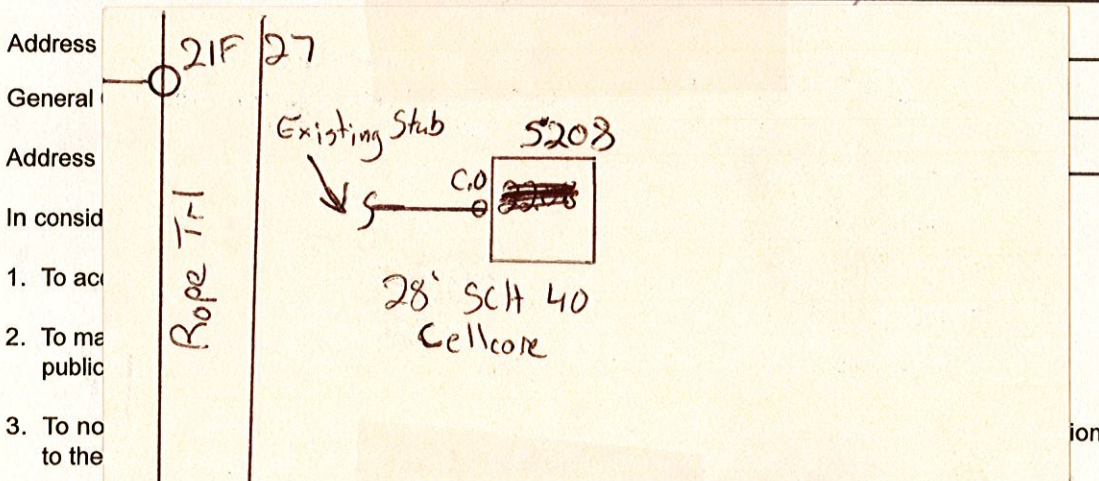 Address
General
Address
In consid
1. To acc
2. To ma
public
3. To no
to the
ion
21F 27
Existing Stub
5208
C.O
Rope Trl
28' SCH 40
Cellcore